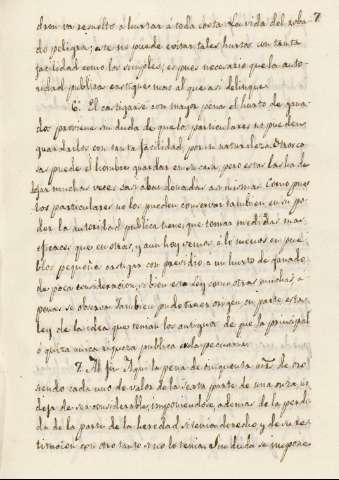 7
dron va resuelto a hurtar a toda costa. La vida del roba-
do peligra; este no puede evitar tales hurtos con tanta
facilidad como los simples; es pues necesario que la auto-
ridad publica castigue mas al que asi delinque.
6. El castigarse con mayor pena el hurto de gana-
dos proviene sin duda de que los particulares no pueden
guardarlos con tanta facilidad, por su naturaleza. Otras co-
sas puede el hombre guardar en su casa, pero estas las ha de
dejar muchas veces casi abandonadas a si mismas. Como pues
los particulares no los pueden conservar tambien en su po-
der la autoridad publica tiene que tomar medidas mas
eficaces que en otras, y aun hoy vemos a lo menos en pue-
blos pequeños castigar con presidio a un hurto de ganado
de poca consideracion, si bien esta ley como otras muchas, a
penas se observa. Tambien pudo traer origen en parte esta
ley de la idea que tenian los antiguos de que la principal
ó quiza unica riqueza publica es la pecuaria.
7. Al fin la pena de cinquenta de
siendo cada uno de valor de la sexta parte de una onza, no
deja de ser considerable, imponiendose, ademas de la perdi-
da de la parte de la heredad si tenia derecho y de su res-
titucion con otro tanto si no lo tenia. Sin duda se impone